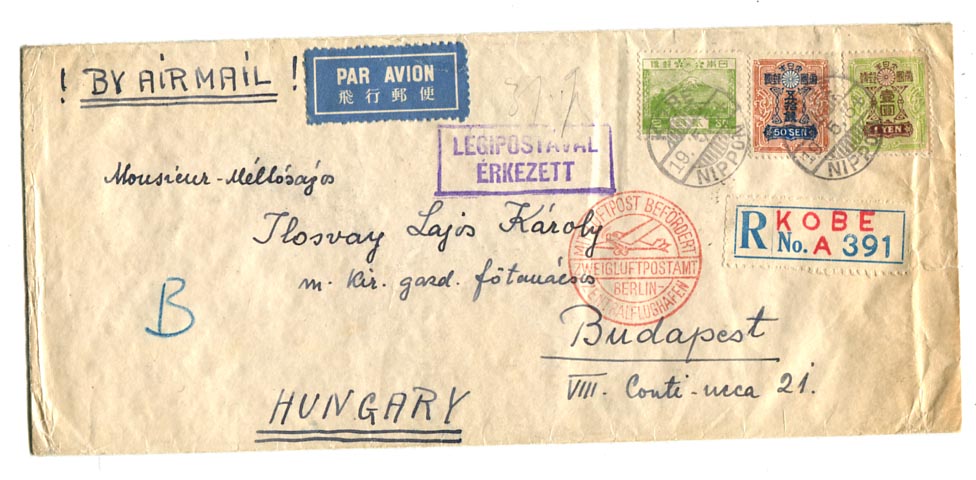 ! BY AIRMAIL !
PAR AVION
飛行郵便
LÉGIPOSTÁVAL
ÉRKEZETT
大日本帝國郵便
50 SEN
1 YEN
KOBE
NIPPON
NIPPON
R KOBE
No. A 391
Monsieur-Méltóságos
Ilosvay Lajos Károly
m. kir. gazd. főtanácsos
MIT LUFTPOST BEFÖRDERT
ZWEIGLUFTPOSTAMT
BERLIN-
ZENTRALFLUGHAFEN
B
Budapest
VIII. Conti-ucca 21.
HUNGARY